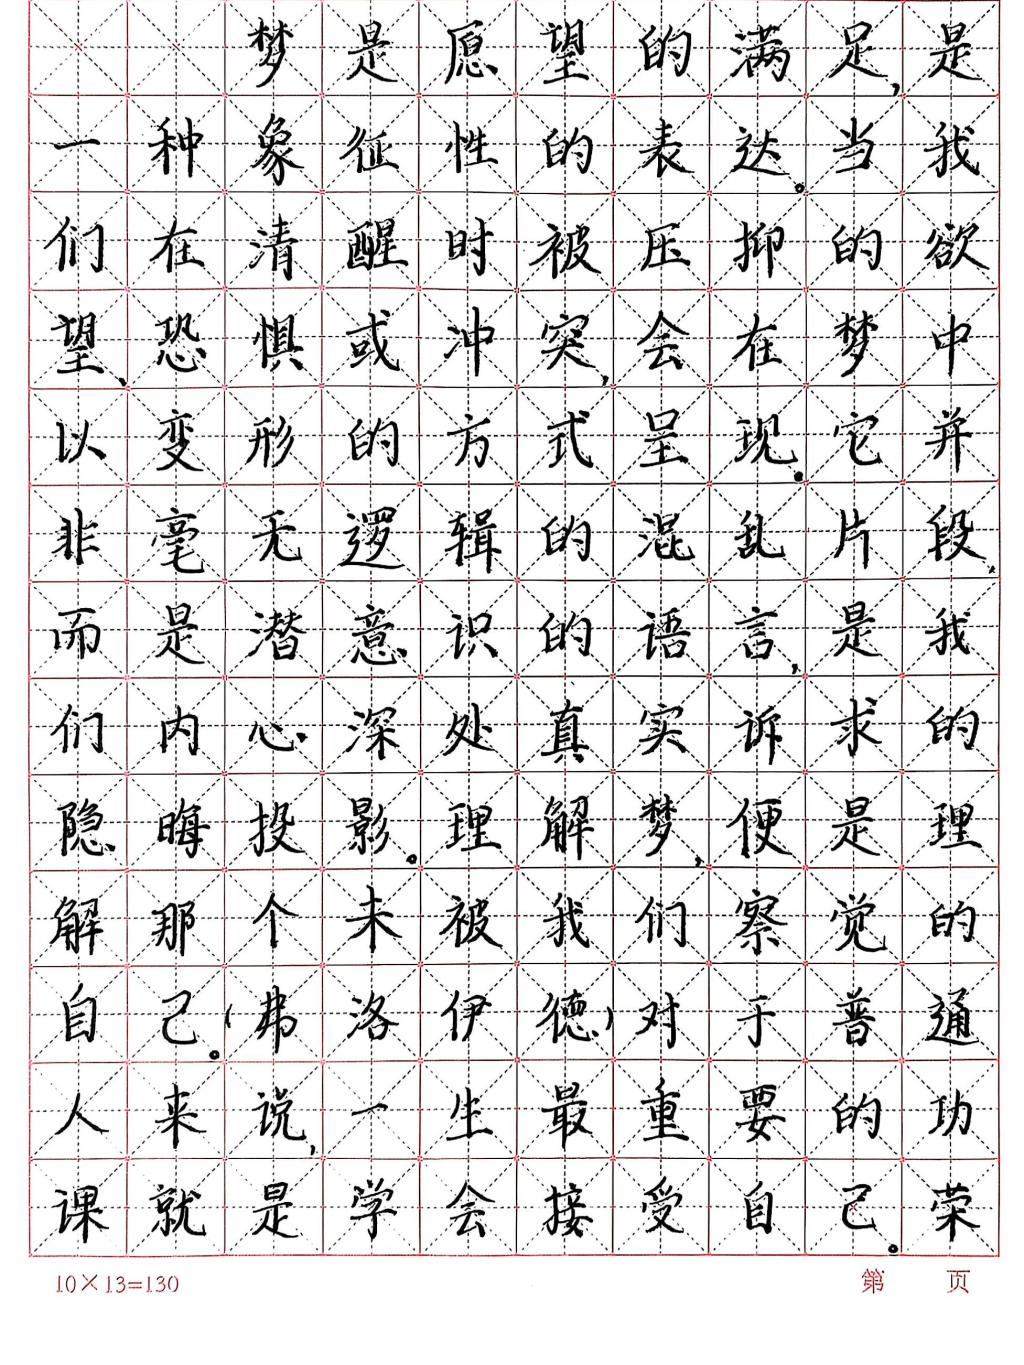 梦是愿望的满足,是
一种象征性的表达。当我
们在清醒时被压抑的欲
望、恐惧或冲突,会在梦中
以变形的方式呈现。它并
非毫无逻辑的混乱片段,
而是潜意识的语言,是我
们内心深处真实诉求的
隐晦投影。理解梦,便是理
解那个未被我们察觉的
自己。(弗洛伊德)对于普通
人来说,一生最重要的功
课就是学会接受自己。荣
10×13=130 第 页